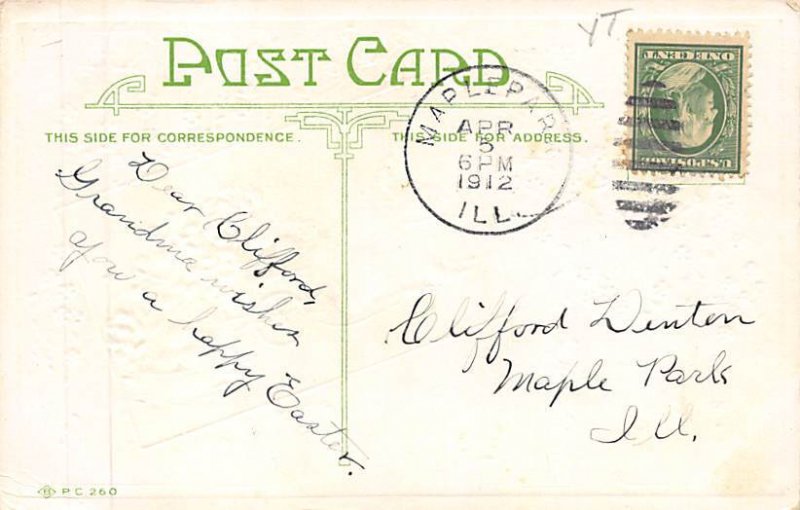 YT
POST CARD
THIS SIDE FOR CORRESPONDENCE.
THIS SIDE FOR ADDRESS.
MAPLE PARK
APR
5
6 PM
1912
ILL.
U.S. POSTAGE
ONE CENT
Dear Clifford,
Grandma wishes
you a happy Easter.
Clifford Denton
Maple Park
Ill.
B PC 260